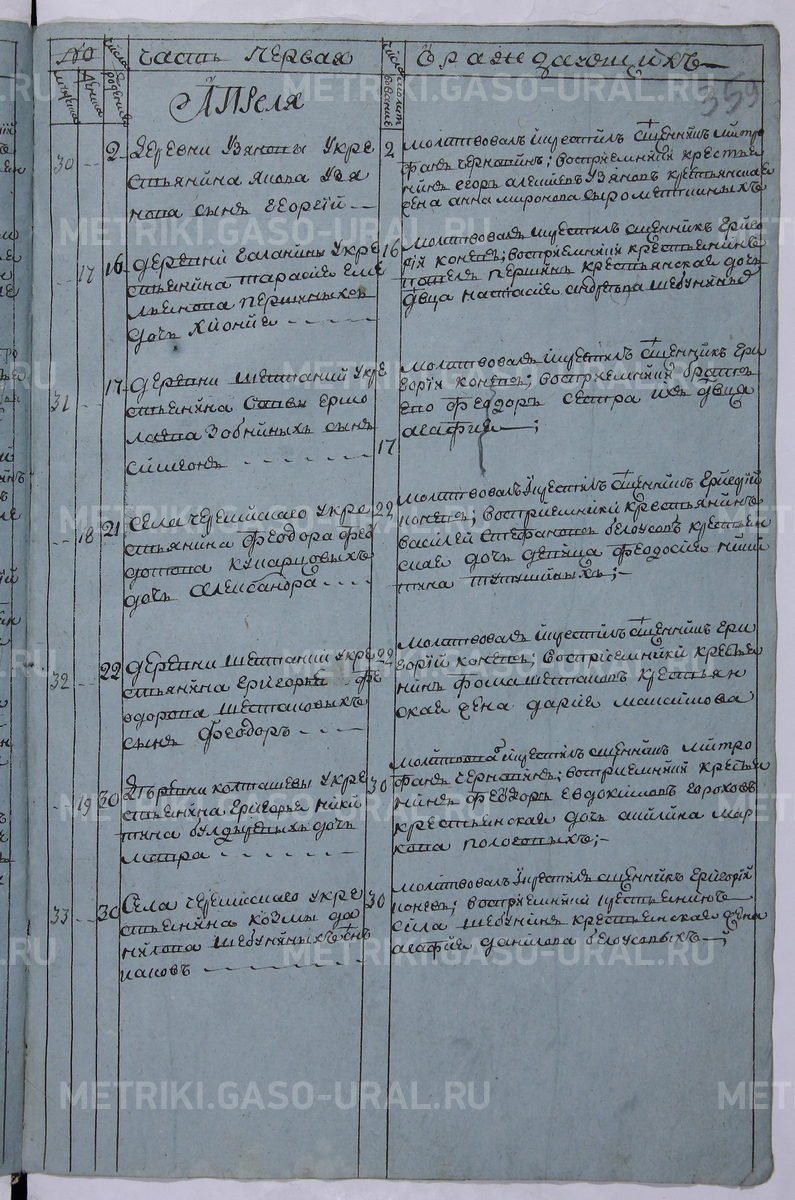 359
№ часть первая о раждающихся
числа рождения
мужеска
женска
Апреля
30 2 Деревни Узяновы у кре
стьянина Якова Узя
нова сынъ Георгiй
2 молитвовалъ и крестилъ священникъ митро
фанъ чернавинъ; восприемники крестья
нинъ егоръ алексеевъ Узяновъ крестьянская
жена анна миронова сыромятниныхъ
17 16 деревни галанины у кре
стьянина тарасия еме
льянова першиныхъ
дочь Хиония
16 молитвовалъ и крестилъ священникъ григо
рiй коневъ; восприемники крестьянинъ
першинъ крестьянская дочь
двца настасия шебуниныхъ
31 17 деревни шестаковы у кре
стьянина Саввы ермо
лаева Зобниныхъ сынъ
симеонъ
17 молитвовалъ и крестилъ священникъ гри
горiй коневъ; восприемники братъ
его феодоръ сестра ихъ двца
агафия
18 21 села черемисскаго у кре
стьянина феодора фео
дотова кукарцовыхъ
дочь Александра
22 молитвовалъ и крестилъ священникъ григорiй
коневъ; восприемники крестьянинъ
василей стефановъ белоусовъ крестьян
ская дочь девица феодосия ники
тина
32 22 деревни шестаковы у кре
стьянина григорья фе
одорова шестаковыхъ
сынъ феодоръ
22 молитвовалъ и крестилъ священникъ гри
горiй коневъ; восприемники крестья
нинъ фома шестаковъ крестьян
ская жена дария максимова
19 30 Деревни колташевы у кре
стьянина григорья ники
тина булдыревыхъ дочь
мавра
30 молитвовалъ и крестилъ священникъ митро
фанъ чернавинъ; восприемники крестья
нинъ феодоръ евдокимовъ гороховъ
крестьянская дочь акилина мар
кова пологовыхъ;
33 30 Села черемисскаго у кре
стьянина козмы да
нилова шебуниныхъ сынъ
иаковъ
30 молитвовалъ и крестилъ священникъ григорiй
коневъ; восприемники крестьянинъ
сила шебунинъ крестьянская жена
агафия данилова белоусовыхъ;
METRIKI.GASO-URAL.RU